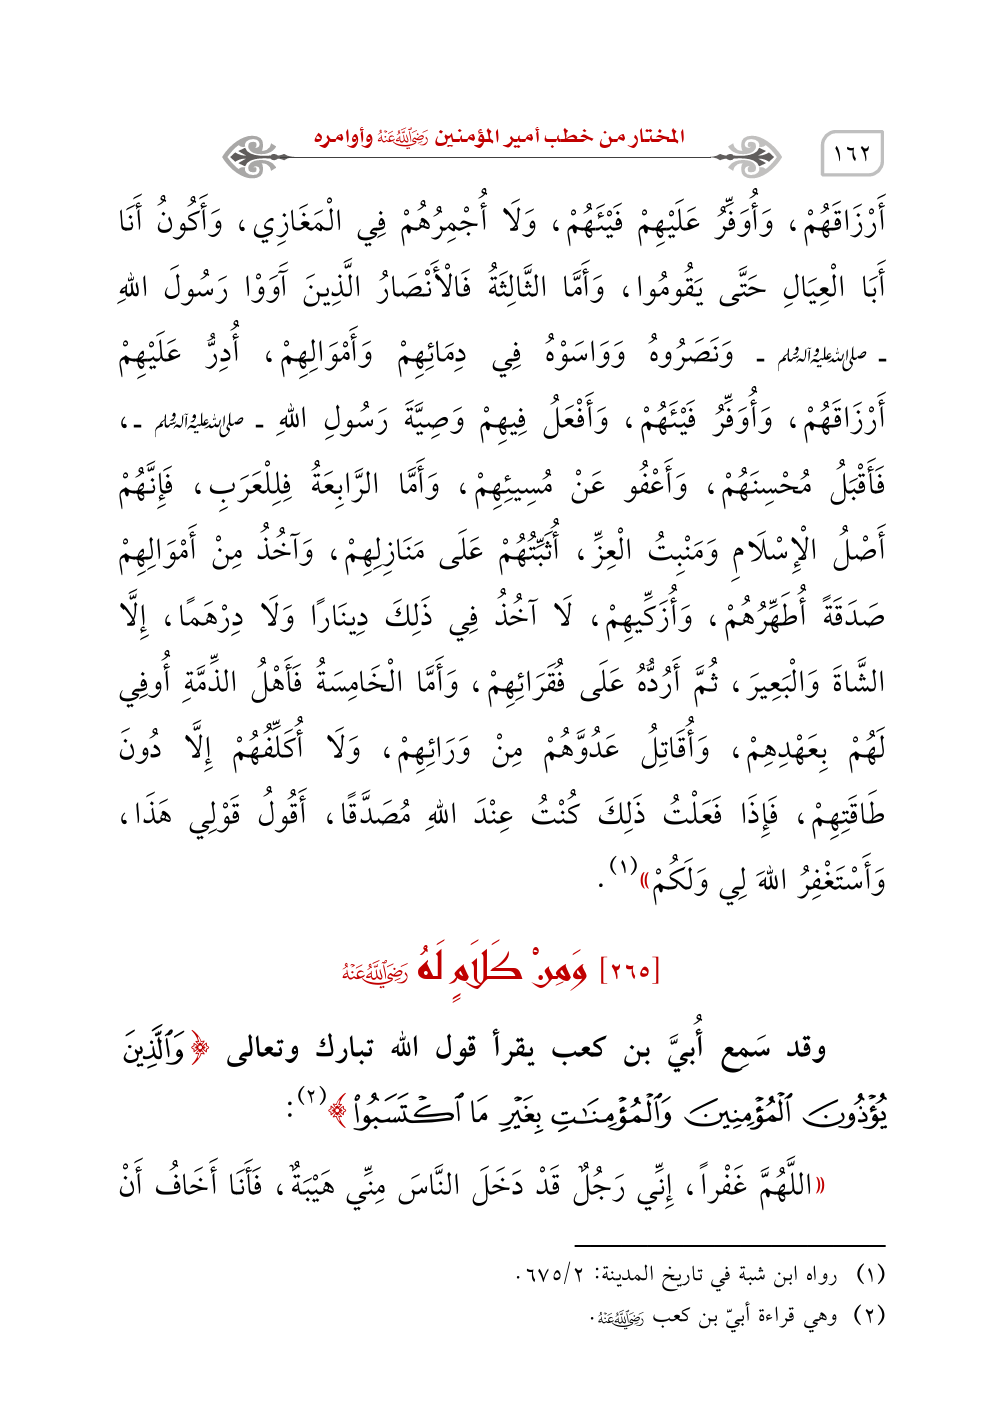 ١٦٢
المختار من خطب أمير المؤمنين رَضِيَ اللَّهُ عَنْهُ وأوامره
أَرْزَاقَهُمْ، وَأُوَفِّرُ عَلَيْهِمْ فَيْئَهُمْ، وَلَا أُجْمِرُهُمْ فِي الْمَغَازِي، وَأَكُونُ أَنَا
أَبَا الْعِيَالِ حَتَّى يَقُومُوا، وَأَمَّا الثَّالِثَةُ فَالْأَنْصَارُ الَّذِينَ آَوَوْا رَسُولَ اللهِ
ـ صلى الله عليه وآله وسلم ـ وَنَصَرُوهُ وَوَاسَوْهُ فِي دِمَائِهِمْ وَأَمْوَالِهِمْ، أُدِرُّ عَلَيْهِمْ
أَرْزَاقَهُمْ، وَأُوَفِّرُ فَيْئَهُمْ، وَأَفْعَلُ فِيهِمْ وَصِيَّةَ رَسُولِ اللهِ ـ صلى الله عليه وآله وسلم ـ،
فَأَقْبَلُ مُحْسِنَهُمْ، وَأَعْفُو عَنْ مُسِيئِهِمْ، وَأَمَّا الرَّابِعَةُ فِلِلْعَرَبِ، فَإِنَّهُمْ
أَصْلُ الْإِسْلَامِ وَمَنْبِتُ الْعِزِّ، أُثَبِّتُهُمْ عَلَى مَنَازِلِهِمْ، وَآخُذُ مِنْ أَمْوَالِهِمْ
صَدَقَةً أُطَهِّرُهُمْ، وَأُزَكِّيهِمْ، لَا آخُذُ فِي ذَلِكَ دِينَارًا وَلَا دِرْهَمًا، إِلَّا
الشَّاةَ وَالْبَعِيرَ، ثُمَّ أَرُدُّهُ عَلَى فُقَرَائِهِمْ، وَأَمَّا الْخَامِسَةُ فَأَهْلُ الذِّمَّةِ أُوفِي
لَهُمْ بِعَهْدِهِمْ، وَأُقَاتِلُ عَدُوَّهُمْ مِنْ وَرَائِهِمْ، وَلَا أُكَلِّفُهُمْ إِلَّا دُونَ
طَاقَتِهِمْ، فَإِذَا فَعَلْتُ ذَلِكَ كُنْتُ عِنْدَ اللهِ مُصَدَّقًا، أَقُولُ قَوْلِي هَذَا،
وَأَسْتَغْفِرُ اللهَ لِي وَلَكُمْ»(١).
[٢٦٥] وَمِنْ كَلَامٍ لَهُ رَضِيَ اللَّهُ عَنْهُ
وقد سَمِع أُبيَّ بن كعب يقرأ قول الله تبارك وتعالى ﴿وَٱلَّذِينَ
يُؤْذُونَ ٱلْمُؤْمِنِينَ وَٱلْمُؤْمِنَٰتِ بِغَيْرِ مَا ٱكْتَسَبُوا۟﴾(٢):
«اللَّهُمَّ غَفْراً، إِنِّي رَجُلٌ قَدْ دَخَلَ النَّاسَ مِنِّي هَيْبَةٌ، فَأَنَا أَخَافُ أَنْ
(١) رواه ابن شبة في تاريخ المدينة: ٢/ ٦٧٥.
(٢) وهي قراءة أبيّ بن كعب رَضِيَ اللَّهُ عَنْهُ.